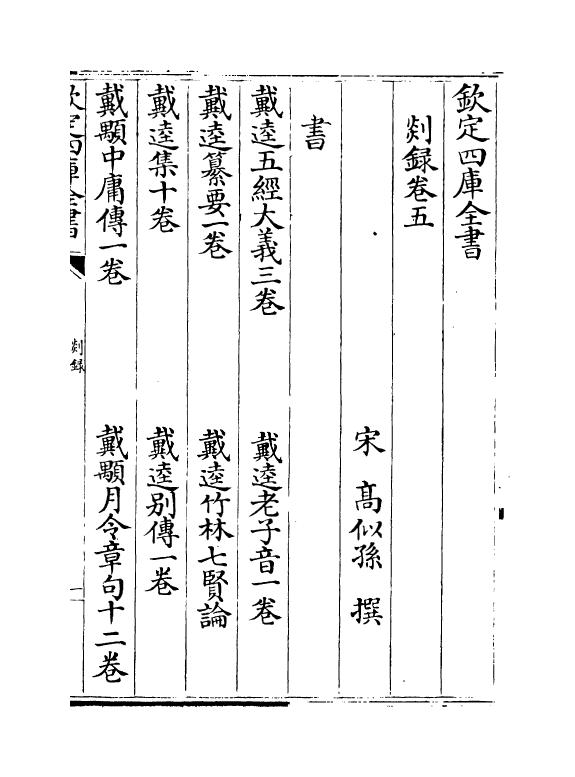 欽定四庫全書
剡録卷五
宋 髙似孫 撰
書
戴逵五經大義三卷 戴逵老子音一卷
戴逵纂要一卷 戴逵竹林七賢論
戴逵集十卷 戴逵别傳一卷
戴顒中庸傳一卷 戴顒月令章句十二卷
欽定四庫全書 剡録 一